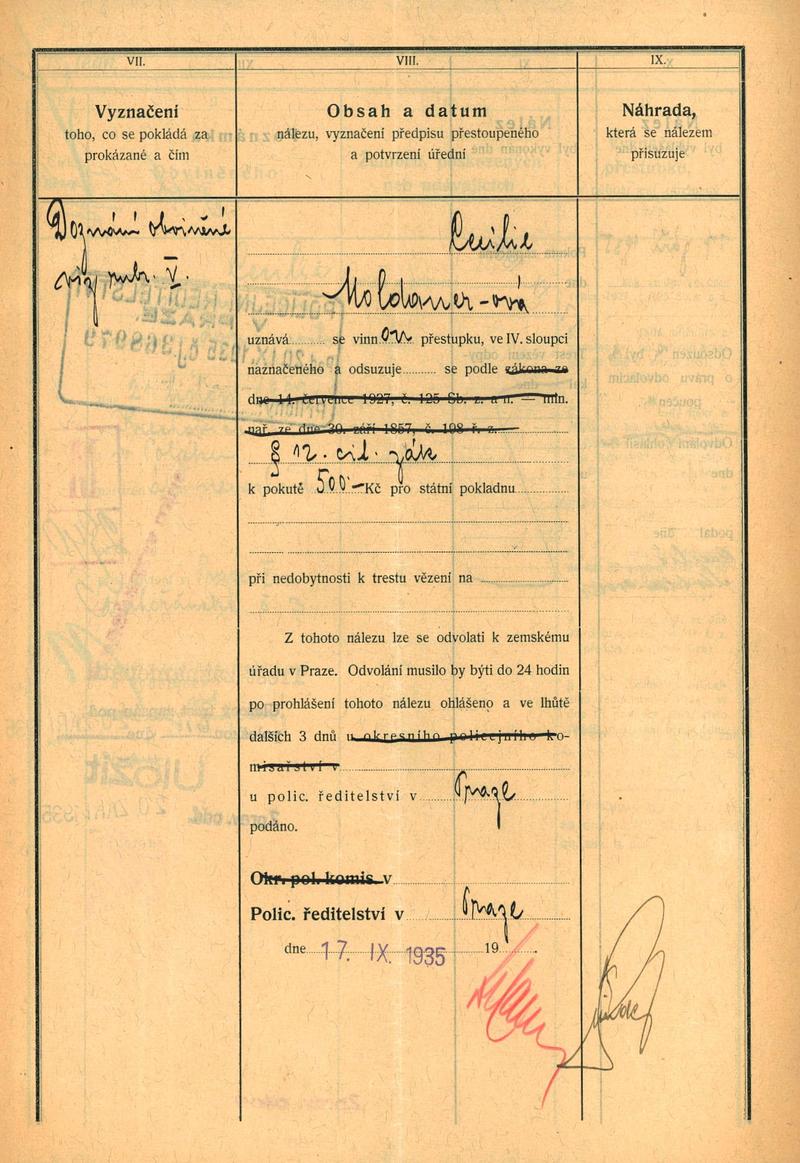 VII.
Vyznačení
toho, co se pokládá za
prokázané a čím
Doznání obviněné
viz rubr. V.
VIII.
Obsah a datum
nálezu, vyznačení předpisu přestoupeného
a potvrzení úřední
Cecilie
Moldauer-ová
uznává se vinnou přestupku, ve IV. sloupci
naznačeného a odsuzuje se podle zákona ze
dne 14. července 1927, č. 125 Sb. z. a n. — min.
nař. ze dne 30. září 1857, č. 198 ř. z.
§ 12. cit. zák
k pokutě 500·— Kč pro státní pokladnu
při nedobytnosti k trestu vězení na
Z tohoto nálezu lze se odvolati k zemskému
úřadu v Praze. Odvolání musilo by býti do 24 hodin
po prohlášení tohoto nálezu ohlášeno a ve lhůtě
dalších 3 dnů u okresního policejního ko-
misařství v
u polic. ředitelství v Praze
podáno.
Okr. pol. komis. v
Polic. ředitelství v Praze
dne 17. IX. 1935 19
IX.
Náhrada,
která se nálezem
přisuzuje